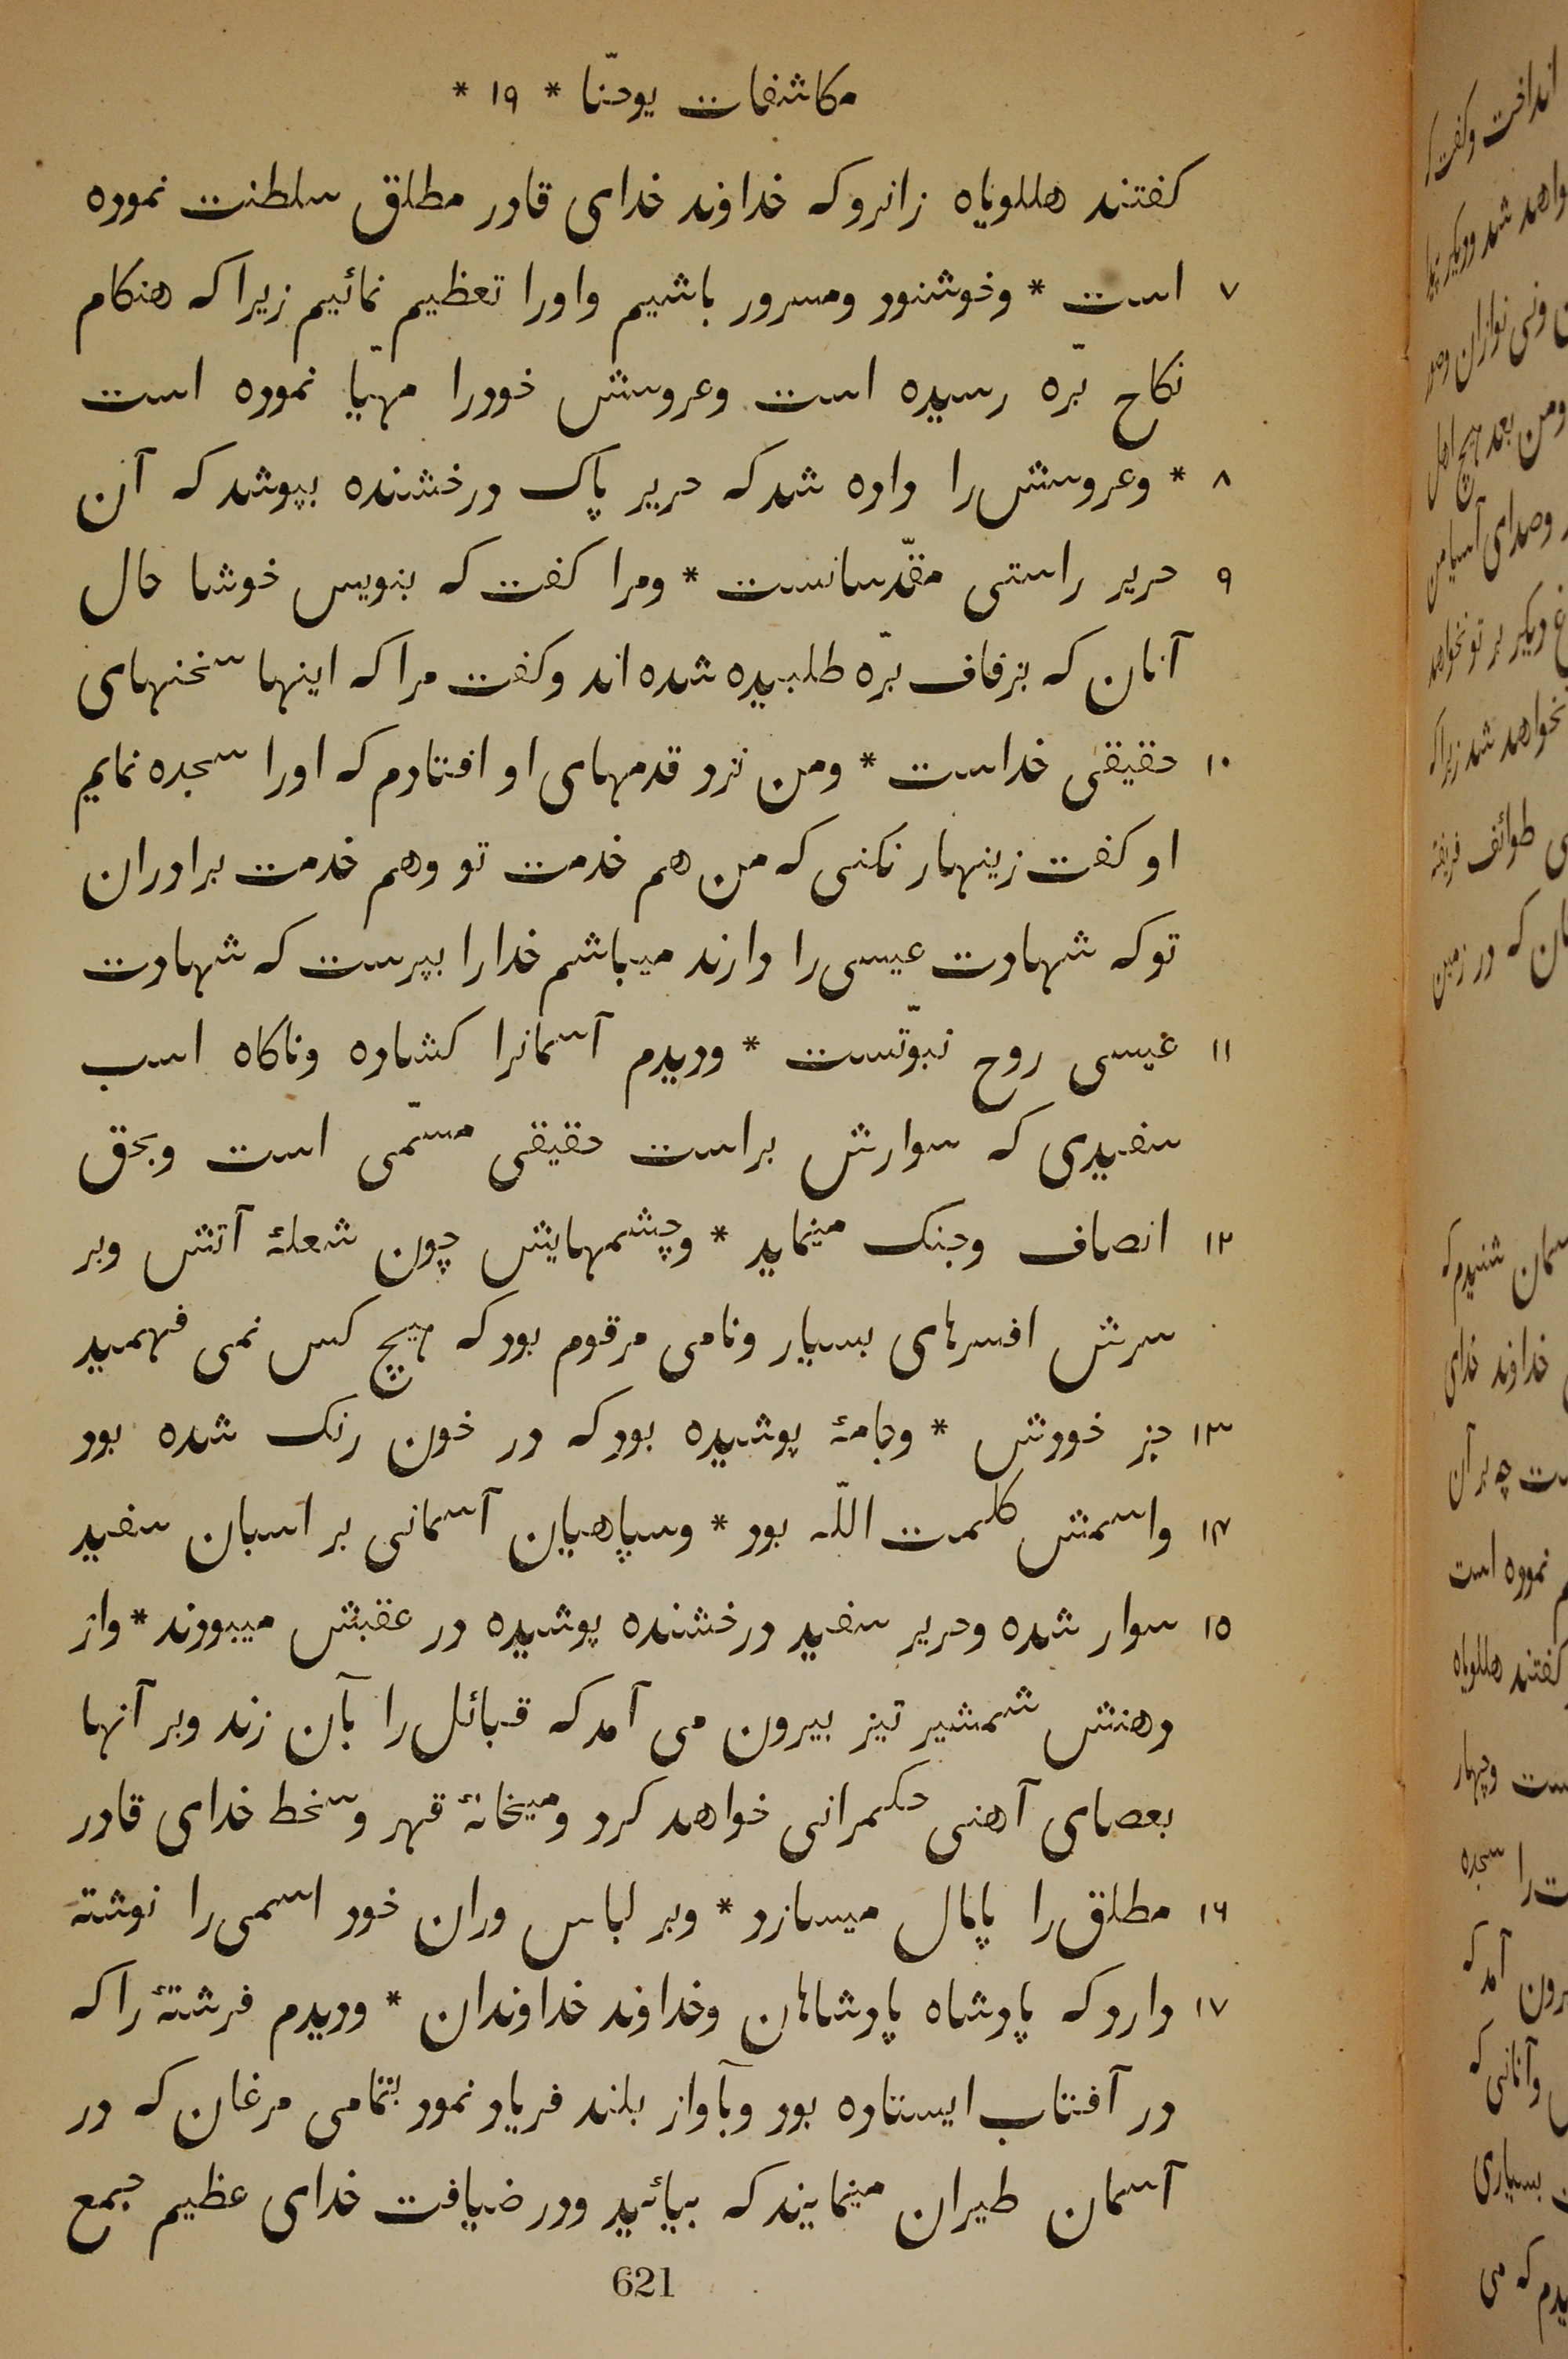 مکاشفات یوحنّا * ۱۹ *
کفتند هللویاه زانرو که خداوند خدای قادر مطلق سلطنت نموده
۷ است * وخوشنود ومسرور باشیم واورا تعظیم نمائیم زیرا که هنکام
نکاح برّه رسیده است وعروسش خودرا مهیّا نموده است
۸ * وعروسش را داده شد که حریر پاک درخشنده بپوشد که آن
۹ حریر راستی مقدّسانست * ومرا کفت که بنویس خوشا حال
آنان که بزفاف برّه طلبیده شده اند وکفت مرا که اینها سخنهای
۱۰ حقیقی خداست * ومن نزد قدمهای او افتادم که اورا سجده نمایم
او کفت زینهار نکنی که من هم خدمت تو وهم خدمت برادران
تو که شهادت عیسی را دارند میباشم خدارا بپرست که شهادت
۱۱ عیسی روح نبوّتست * ودیدم آسمانرا کشاده وناکاه اسب
سفیدی که سوارش براست حقیقی مسمّی است وبحق
۱۲ انصاف وجنک مینماید * وچشمهایش چون شعلهٔ آتش وبر
سرش افسرهای بسیار ونامی مرقوم بود که هیچ کس نمی فهمید
۱۳ جز خودش * وجامهٔ پوشیده بود که در خون رنک شده بود
۱۴ واسمش کلمت اللّه بود * وسپاهیان آسمانی بر اسبان سفید
۱۵ سوار شده وحریر سفید درخشنده پوشیده در عقبش میبودند * واز
دهنش شمشیر تیز بیرون می آمد که قبائل را بآن زند وبر آنها
بعصای آهنی حکمرانی خواهد کرد ومیخانهٔ قهر وسخط خدای قادر
۱۶ مطلق را پامال میسازد * وبر لباس وران خود اسمی را نوشته
۱۷ دارد که پادشاه پادشاهان وخداوند خداوندان * ودیدم فرشتهٔ را که
در آفتاب ایستاده بود وبآواز بلند فریاد نمود بتمامی مرغان که در
آسمان طیران مینمایند که بیائید ودر ضیافت خدای عظیم جمع
621